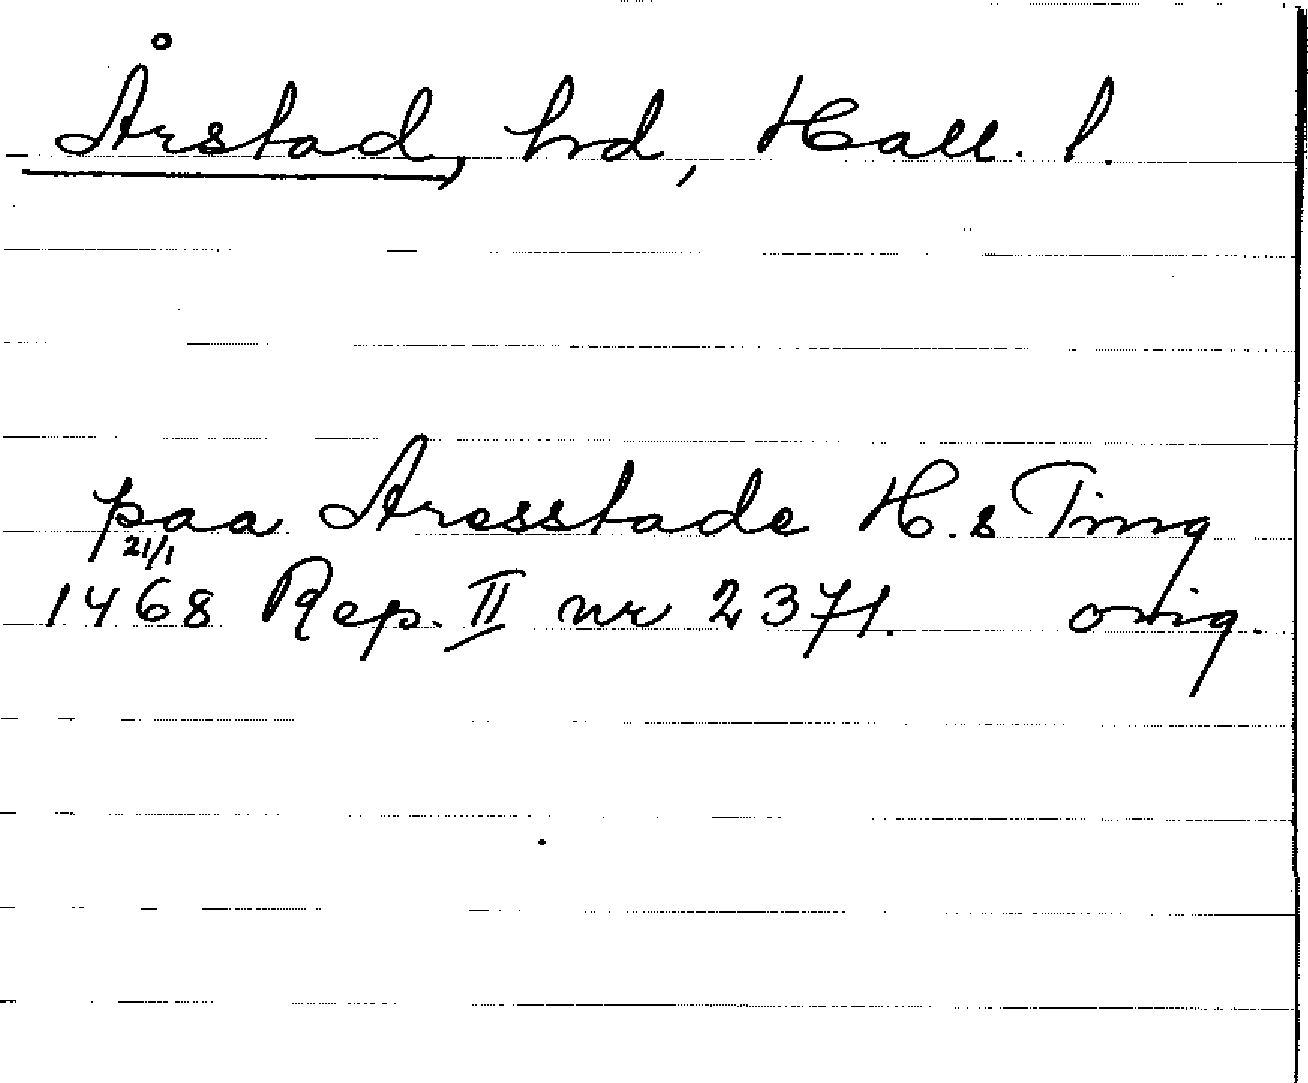 Årstad, hd, Hall. l.
paa Aresstade H.s Ting
21/1
1468 Rep. II nr 2371. orig.